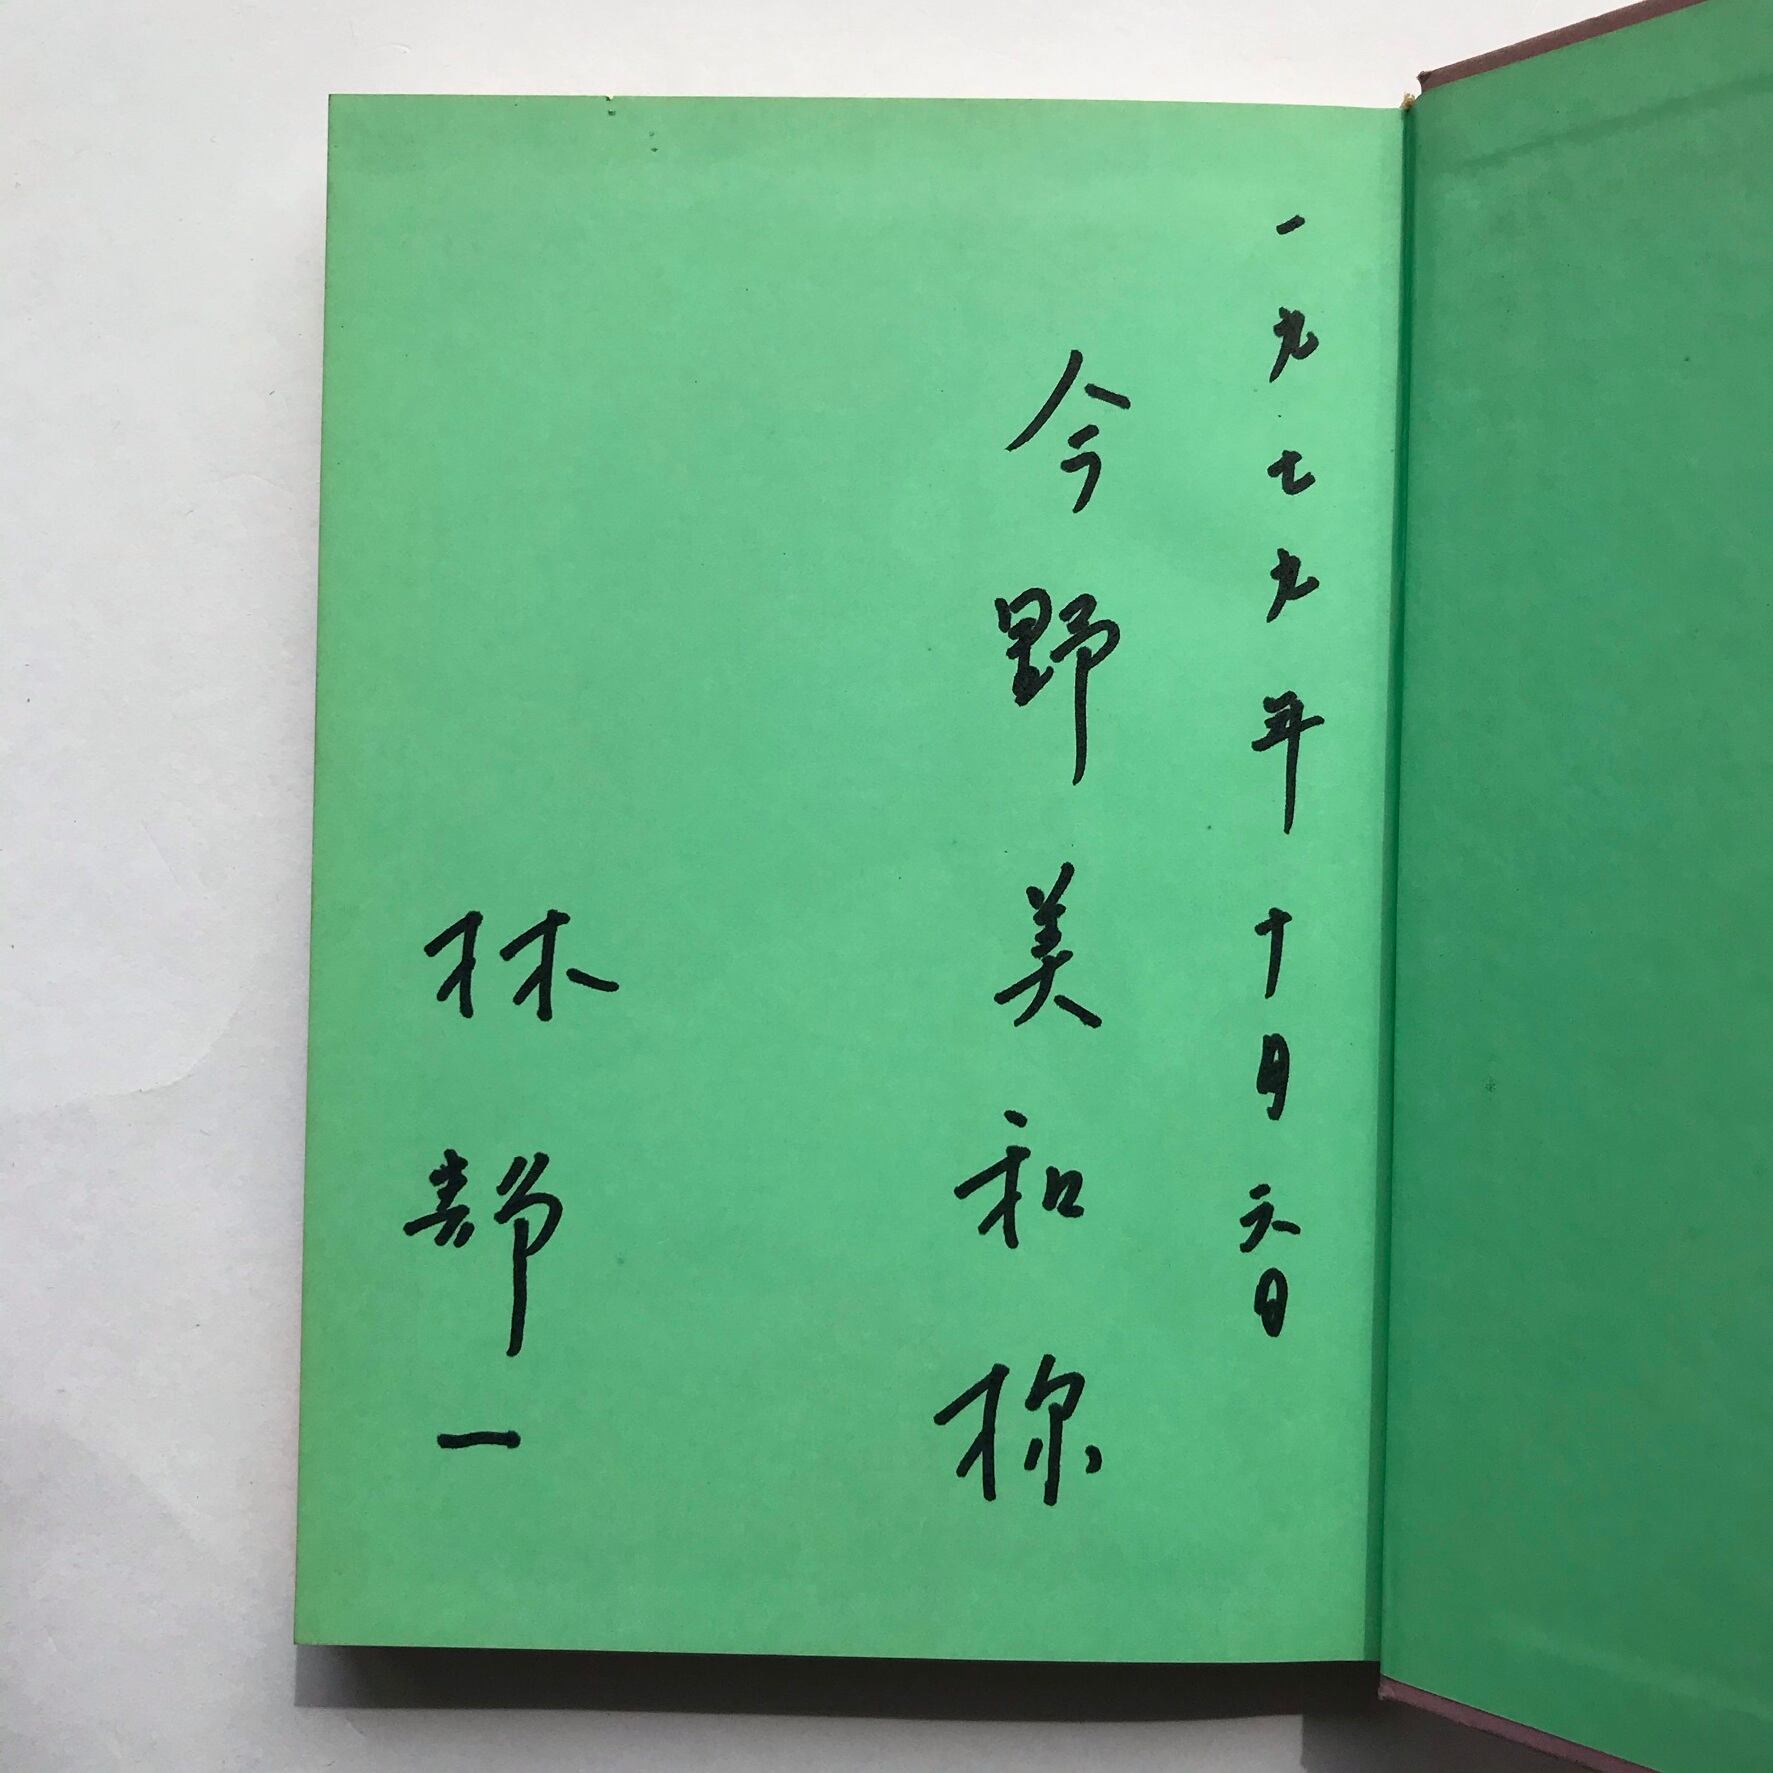 一九七九年十月六日
今野美和様
林静一